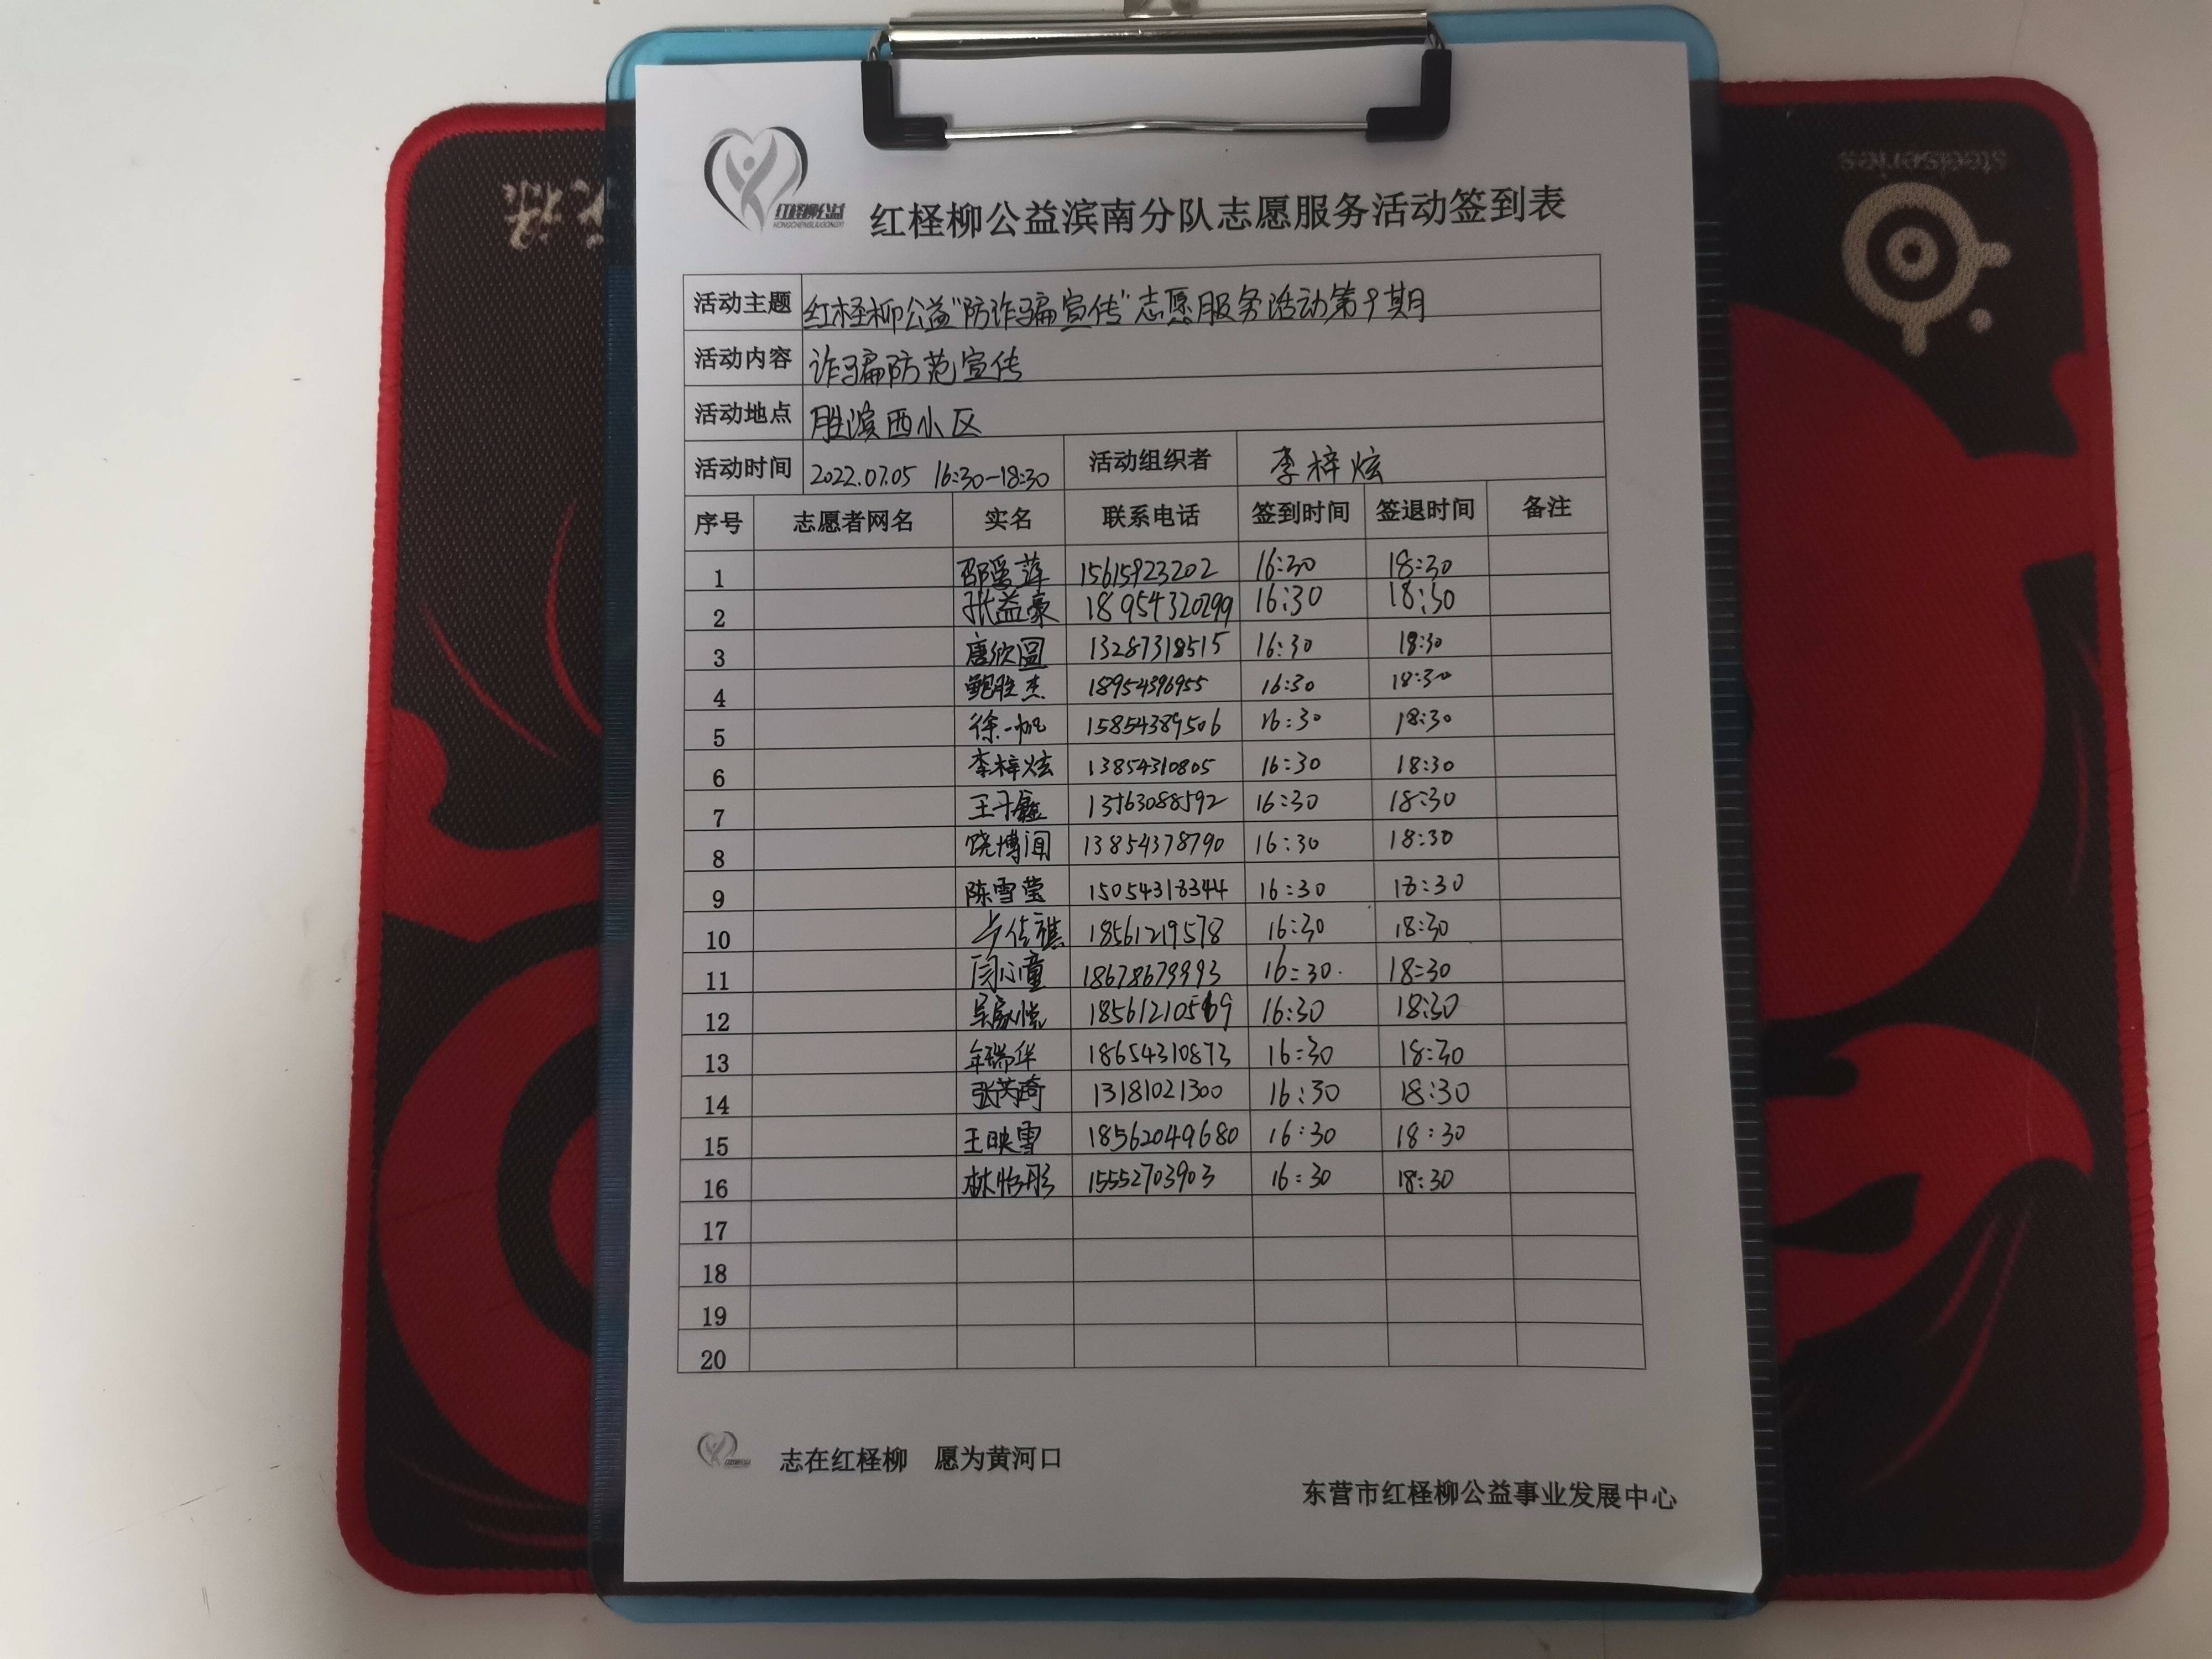 红柽柳公益
HONGCHENGLIUGONGYI
steelseries
红柽柳公益滨南分队志愿服务活动签到表
活动主题 红柽柳公益"防诈骗宣传"志愿服务活动第 期
活动内容 诈骗防范宣传
活动地点 胜滨西小区
活动时间 2022.07.05 16:30-18:30 活动组织者 李梓炫
序号 志愿者网名 实名 联系电话 签到时间 签退时间 备注
1 15615923202 16:30 18:30
2 张益豪 18954320299 16:30 18:30
3 唐欣圆 13287318515 16:30 18:30
4 鲍胜杰 18954396955 16:30 18:30
5 徐一帆 15854389506 16:30 18:30
6 李梓炫 13854310805 16:30 18:30
7 王子鑫 16:30 18:30
8 饶博闻 13854378790 16:30 18:30
9 陈雪莹 15054318344 16:30 18:30
10 18561219578 16:30 18:30
11 闫心童 18678679993 16:30 18:30
12 吴家悦 16:30 18:30
13 牟瑞华 18654310873 16:30 18:30
14 张芮琦 13181021300 16:30 18:30
15 王映雪 18562049680 16:30 18:30
16 林怡彤 15552703903 16:30 18:30
17
18
19
20
志在红柽柳 愿为黄河口
东营市红柽柳公益事业发展中心